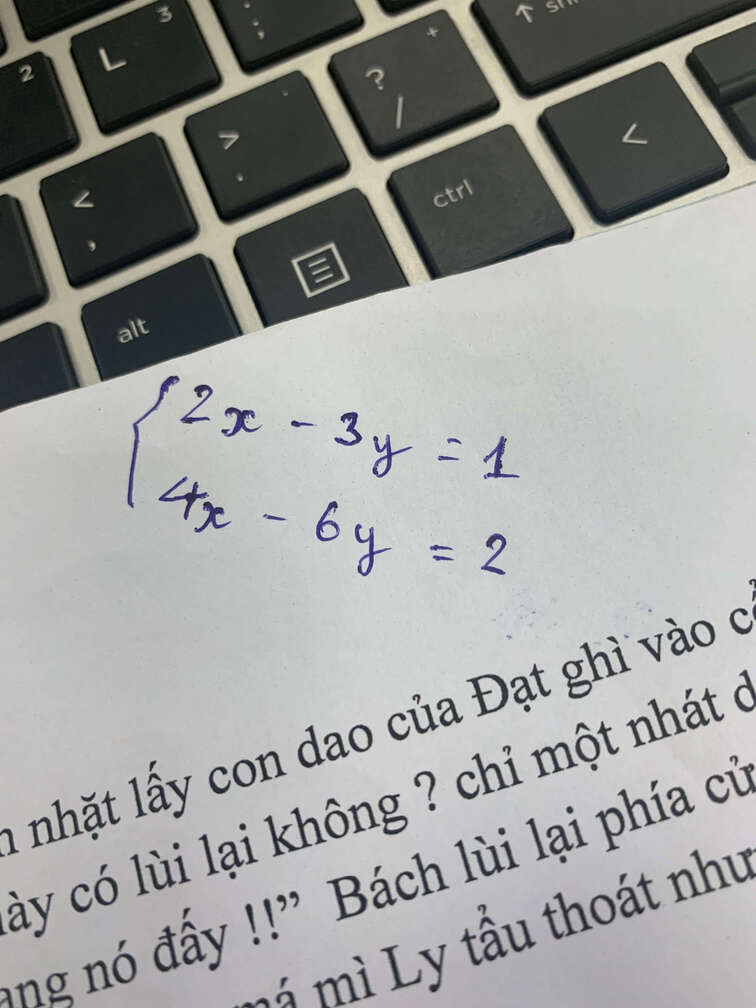 2 L 3 : ;
< , > . ? / + ↑
alt ctrl <
2x - 3y = 1
4x - 6y = 2
nhặt lấy con dao của Đạt ghì vào
có lùi lại không ? chỉ một nhát
nó đấy !!” Bách lùi lại phía
mì Ly tẩu thoát